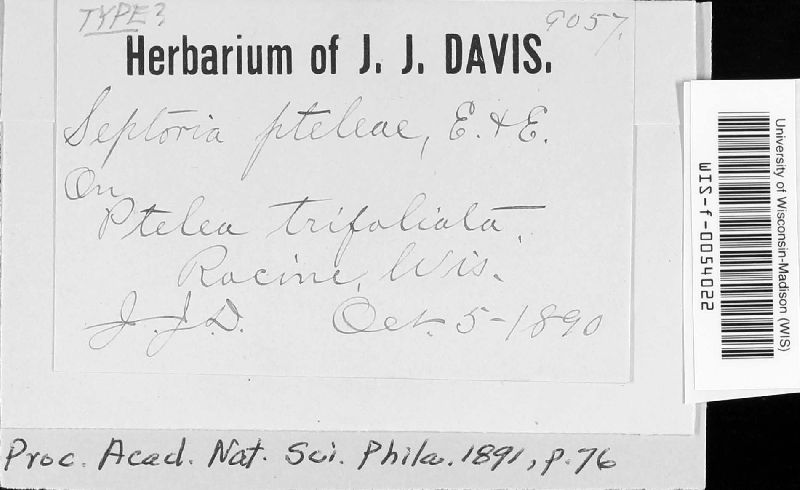 TYPE?
9057.
Herbarium of J. J. DAVIS.
Septoria pteleae, E. & E.
On
Ptelea trifoliata.
Racine, Wis.
J.J.D. Oct. 5-1890
Proc. Acad. Nat. Sci. Phila. 1891, p. 76
University of Wisconsin-Madison (WIS)
WIS-f-0054022